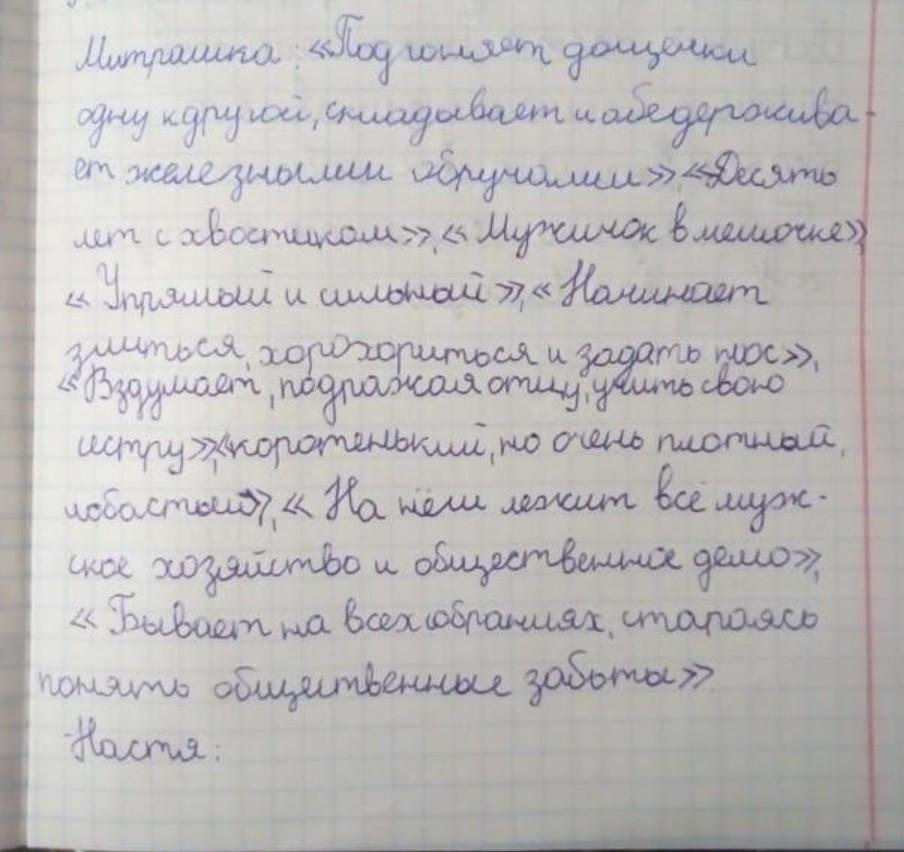 Митрашка: «Подгоняет дощечки
одну к другой, складывает и обедержива-
ет железными обручами» «Десять
лет с хвостиком», «Мужичок в мешочке»,
«Упрямый и сильный», «Начинает
злиться, хорохориться и задать нос»,
«Вздумает, подражая отцу, учить свою
сестру», «коротенький, но очень плотный,
лобастый», «На нём лежит всё муж-
ское хозяйство и общественное дело»,
«Бывает на всех собраниях, стараясь
понять общественные заботы»
Настя: